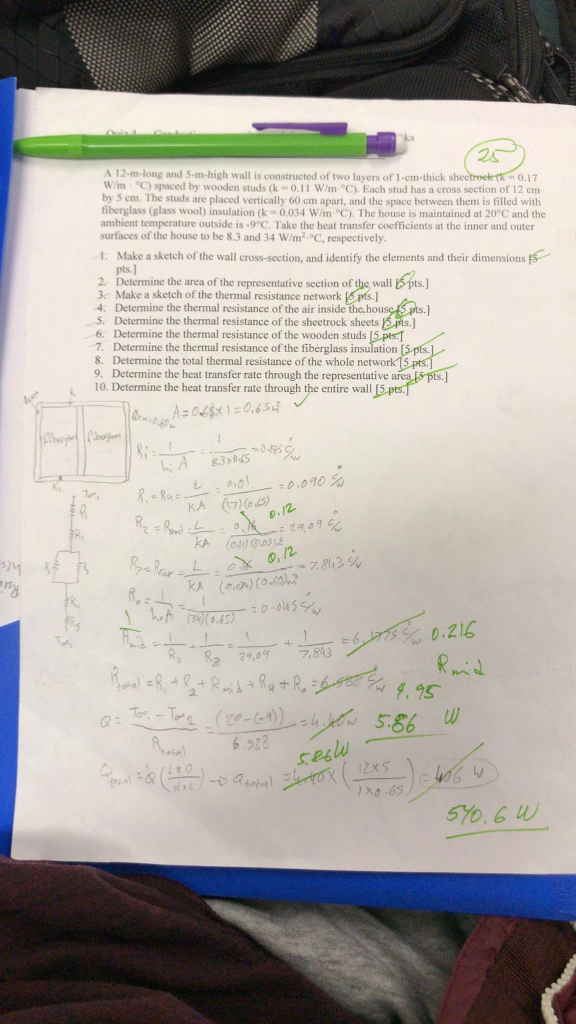 25
A 12-m-long and 5-m-high wall is constructed of two layers of 1-cm-thick sheetrock (k = 0.17
W/m · °C) spaced by wooden studs (k = 0.11 W/m·°C). Each stud has a cross section of 12 cm
by 5 cm. The studs are placed vertically 60 cm apart, and the space between them is filled with
fiberglass (glass wool) insulation (k = 0.034 W/m·°C). The house is maintained at 20°C and the
ambient temperature outside is -9°C. Take the heat transfer coefficients at the inner and outer
surfaces of the house to be 8.3 and 34 W/m²·°C, respectively.
1. Make a sketch of the wall cross-section, and identify the elements and their dimensions [5
pts.]
2. Determine the area of the representative section of the wall [5 pts.]
3. Make a sketch of the thermal resistance network [5 pts.]
4. Determine the thermal resistance of the air inside the house [5 pts.]
5. Determine the thermal resistance of the sheetrock sheets [5 pts.]
6. Determine the thermal resistance of the wooden studs [5 pts.]
7. Determine the thermal resistance of the fiberglass insulation [5 pts.]
8. Determine the total thermal resistance of the whole network [5 pts.]
9. Determine the heat transfer rate through the representative area [5 pts.]
10. Determine the heat transfer rate through the entire wall [5 pts.]
A = 0.65 x 1 = 0.65 m²
fiberglass fiberglass
Ri = 1/(hi A) = 1/(8.3x0.65) = 0.185 °C/W
= L/KA = 0.01 = 0.090 °C/W
0.12
= L/KA = = 29.09 °C/W
0.12
= L/KA = = 7.843 °C/W
Ro = 1/(hoA) = 1/((34)(0.65)) = 0.045 °C/W
1/Rmid = 1/R2 + 1/R3 = 1/29.09 + 1/7.843 = 0.216
Rmid
Rtotal = R1 + R2 + Rmid + R4 + Ro = 4.95
Q = (T∞1 - T∞2)/Rtotal = (20-(-9))/6.588 = 4.40w 5.86 W
5.86W
Qtotal = 4.40 x (12x5 / 1x0.65) = 406 W
540.6 W